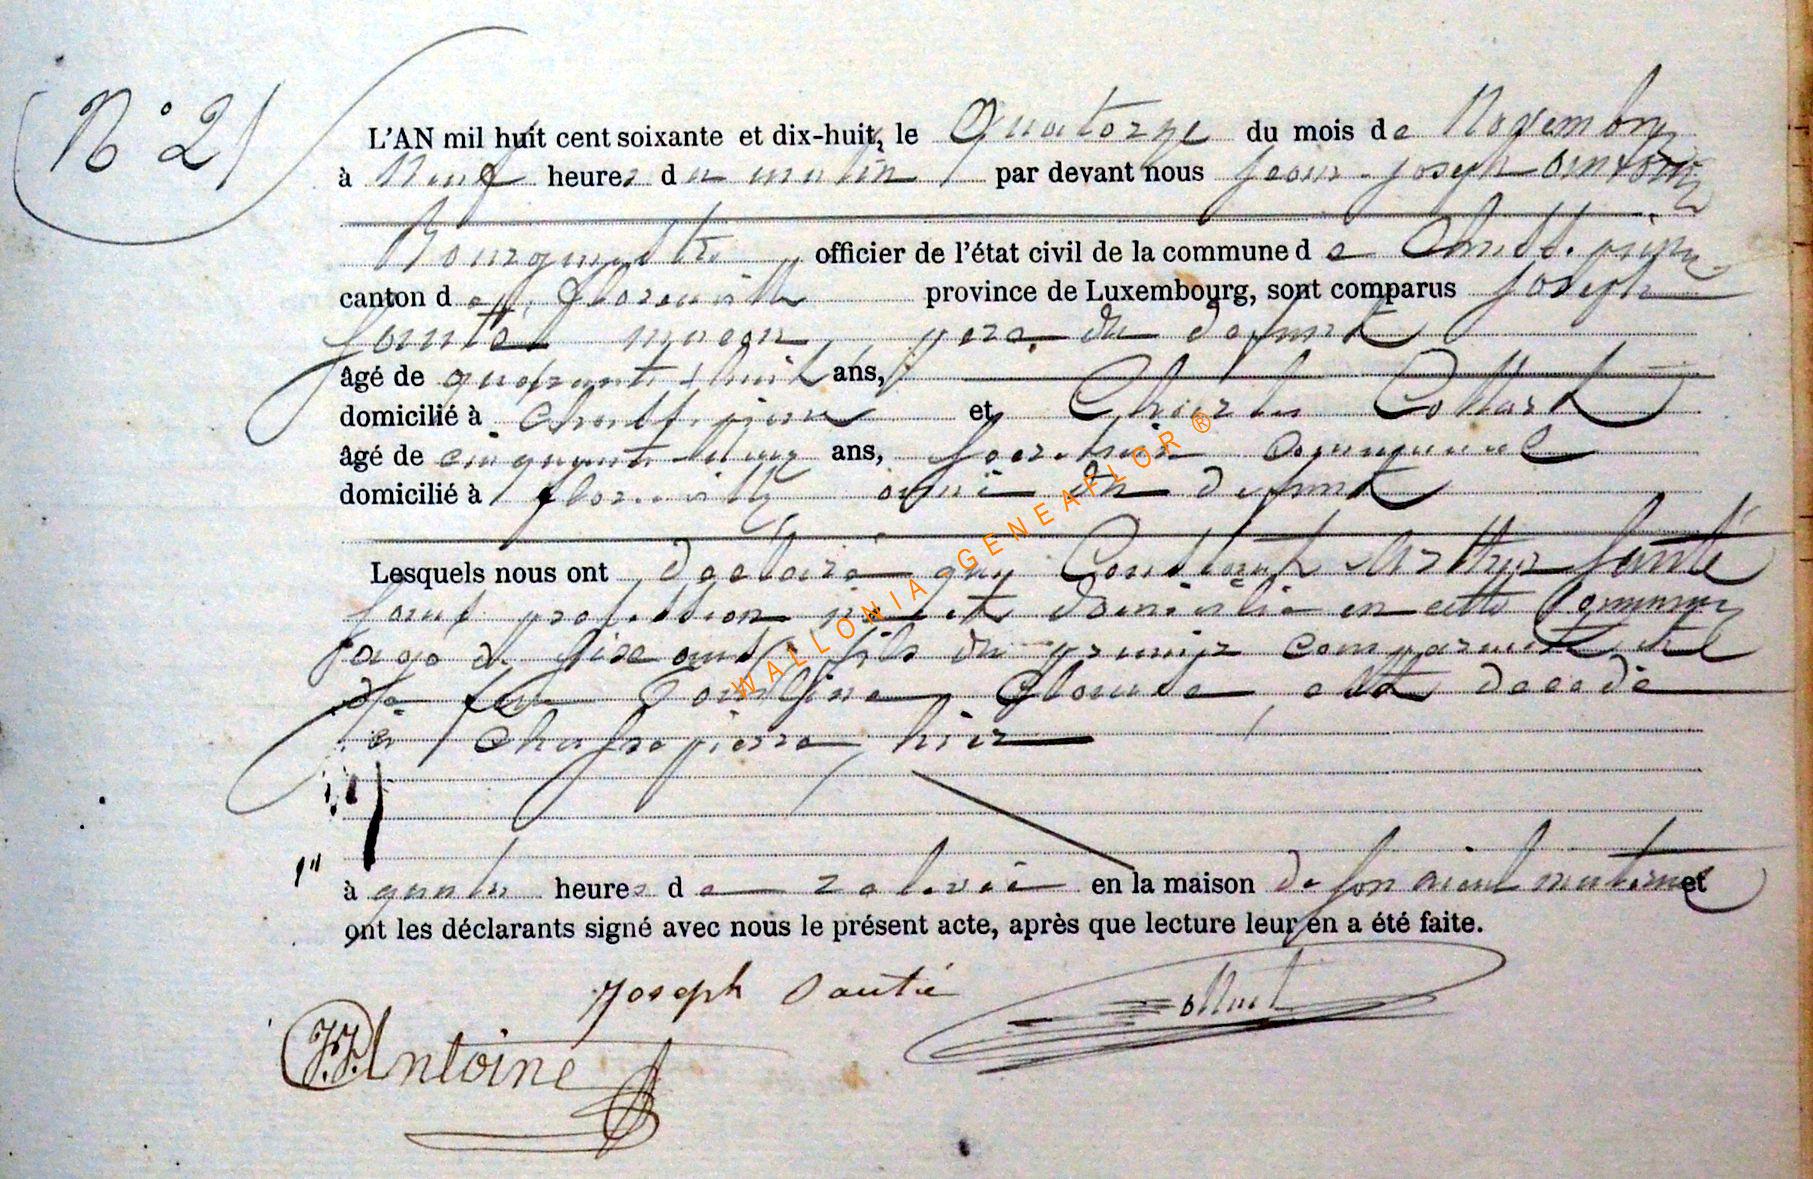 N° 2
L'AN mil huit cent soixante et dix-huit, le Quatorze du mois de Novembre
à Neuf heures du matin par devant nous Jean-Joseph Antoine
Bourgmestre officier de l'état civil de la commune de Chassepierre
canton de Florenville province de Luxembourg, sont comparus Joseph
Santé maçon, père du defunt
âgé de quarante huit ans,
domicilié à Chassepierre et Charles Collart
âgé de cinquante ans, secrétaire communal
domicilié à Florenville ami du defunt
Lesquels nous ont déclaré que Constant Arthur Santé
sans profession né et domicilié en cette Commune
agé de seize ans, fils du premier comparant et
de feu décédé
à Chassepierre, hier
à quatre heures de relevée en la maison de son aieul maternel et
ont les déclarants signé avec nous le présent acte, après que lecture leur en a été faite.
Joseph Santé
Collart
J.J. Antoine
WALLONIA GENEAFLOR ®